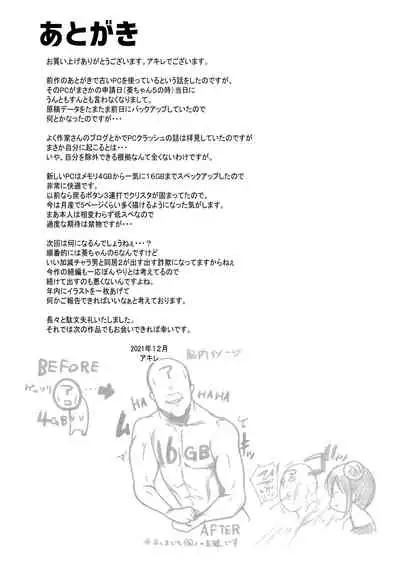 あとがき
お買い上げありがとうございます。アキレでございます。
前作のあとがきで古いPCを使っているという話をしたのですが、
そのPCがまさかの申請日(葵ちゃん5の時)当日に
うんともすんとも言わなくなりまして、
原稿データをたまたま前日にバックアップしていたので
何とかなったのですが・・・
よく作家さんのブログとかでPCクラッシュの話は拝見していたのですが
まさか自分に起こるとは・・・
いや、自分を除外できる根拠なんて全くないわけですが。
新しいPCはメモリ4GBから一気に16GBまでスペックアップしたので
非常に快適です。
以前なら戻るボタン3連打でクリスタが固まってたので、
今は月産で5ページくらい多く描けるようになった気がします。
まあ本人は相変わらず低スペなので
過度な期待は禁物ですが・・・
次回は何になるんでしょうねぇ・・・?
順番的には葵ちゃんの6なんですけど
いい加減チャラ男と同居2が出す出す詐欺になってますからねぇ
今作の続編も一応ぼんやりとは考えてるので
続けて出すのも悪くないんですよね。
年内にイラストを一枚あげて
何かご報告できればいいなぁと考えております。
長々と駄文失礼いたしました。
それでは次の作品でもお会いできれば幸いです。
2021年12月
アキレ
脳内イメージ
BEFORE
ゲッソリ
4GB
?
HA
HA
HAHA
16GB
AFTER